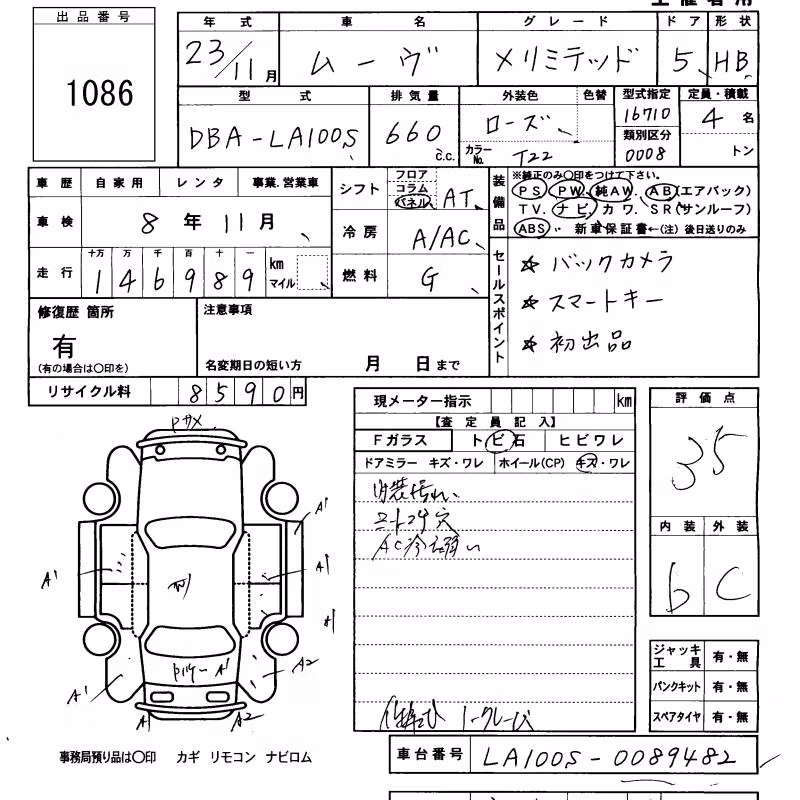 出品番号
1086
年式 車名 グレード ドア 形状
23/11月 ムーヴ メリミテッド 5 HB
型式 排気量 外装色 色替 型式指定 定員・積載
DBA-LA100S 660 c.c. ローズ 16710 4名
カラーNo. T22 類別区分 0008 トン
車歴 自家用 レンタ 事業.営業車
車検 8年11月
走行 十万 万 千 百 十 一 km マイル
1 4 6 9 8 9
シフト フロア コラム パネル AT
冷房 A/AC
燃料 G
装備品 ※純正のみ○印をつけて下さい。
PS. PW. 純AW. AB(エアバック)
TV. ナビ. カワ. SR(サンルーフ)
ABS. 新車保証書←(注) 後日送りのみ
セールスポイント
☆ バックカメラ
☆ スマートキー
☆ 初出品
修復歴 箇所
有
(有の場合は○印を)
注意事項
名変期日の短い方 月 日まで
リサイクル料 8590円
現メーター指示 km
【査定員記入】
Fガラス トビ石 ヒビワレ
ドアミラー キズ・ワレ ホイール(CP) キズ・ワレ
内装汚れ
シートコゲ穴
AC冷え弱い
評価点
35
内装 外装
b C
A1
A1
A1
A1
A1
A2
A1
A2
ジャッキ工具 有・無
パンクキット 有・無
スペアタイヤ 有・無
車台番号 LA100S-0089482
事務局預り品は○印 カギ リモコン ナビロム